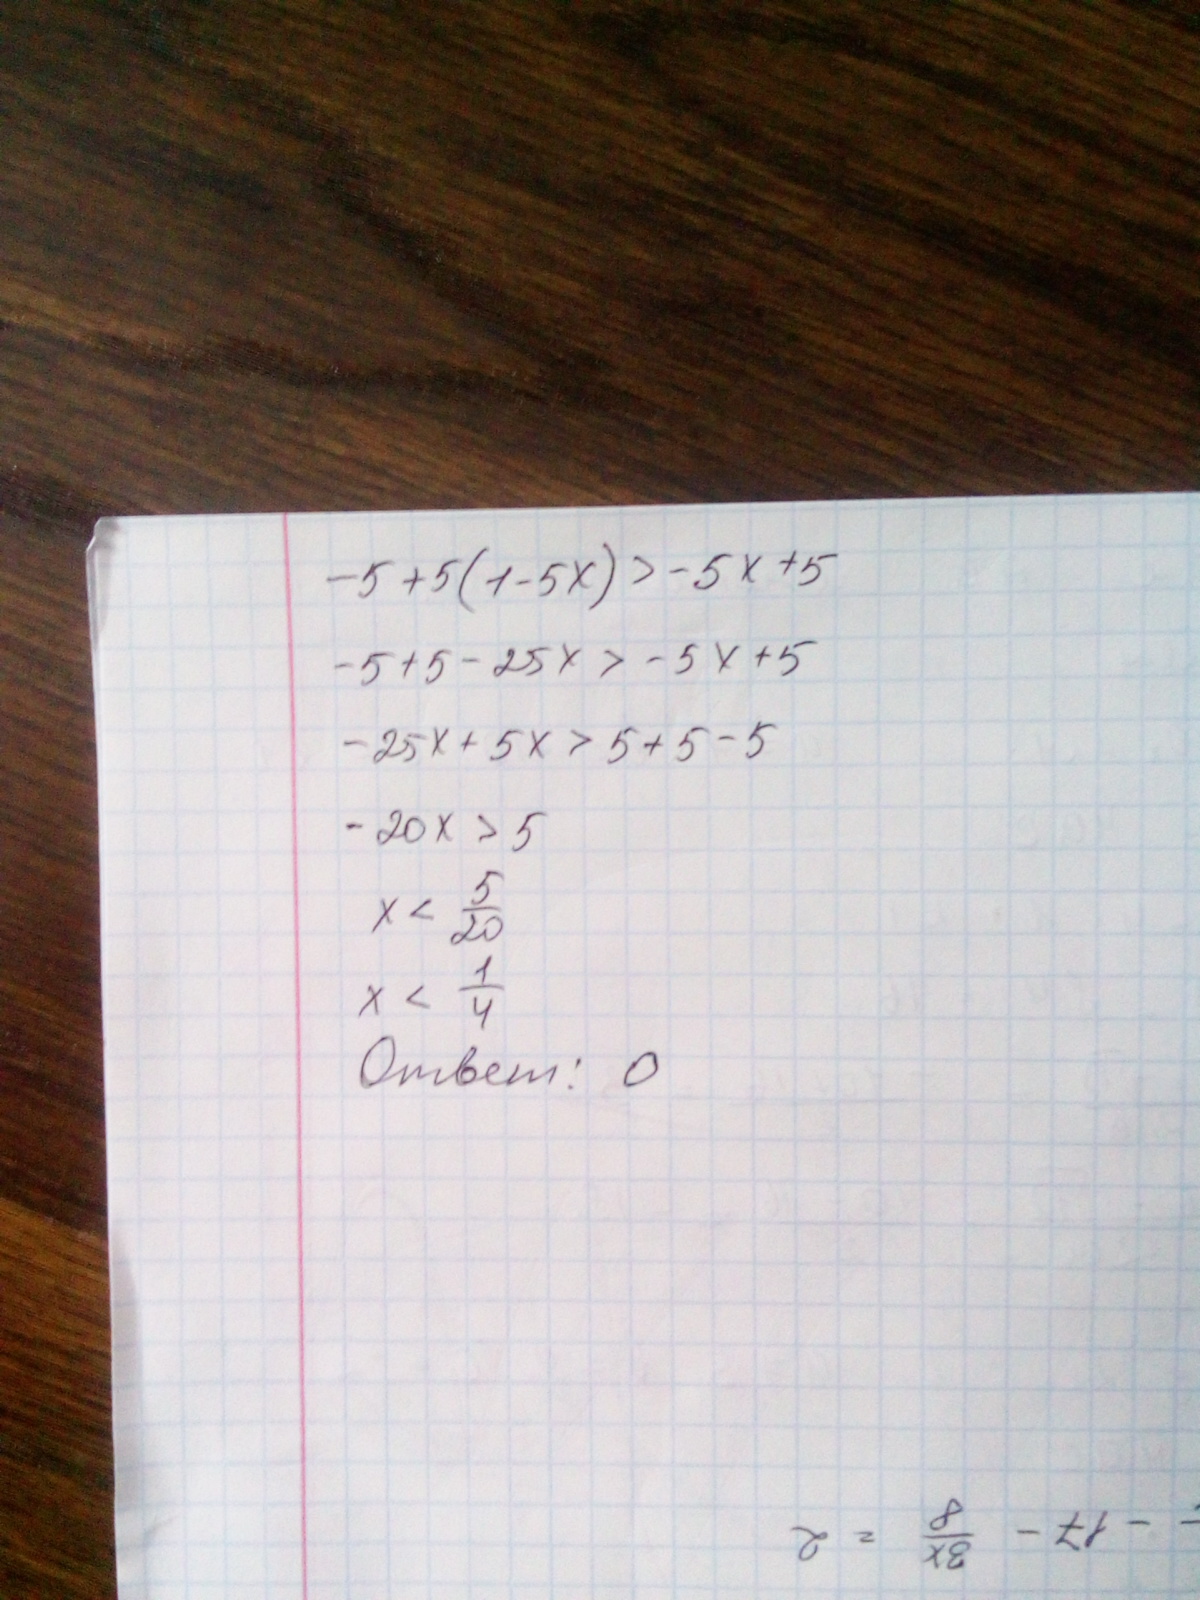 -5+5(1-5x)>-5x+5
-5+5-25x>-5x+5
-25x+5x>5+5-5
-20x>5
x< 5/20
x< 1/4
Ответ: 0
- 17 - 3x/8 = 2